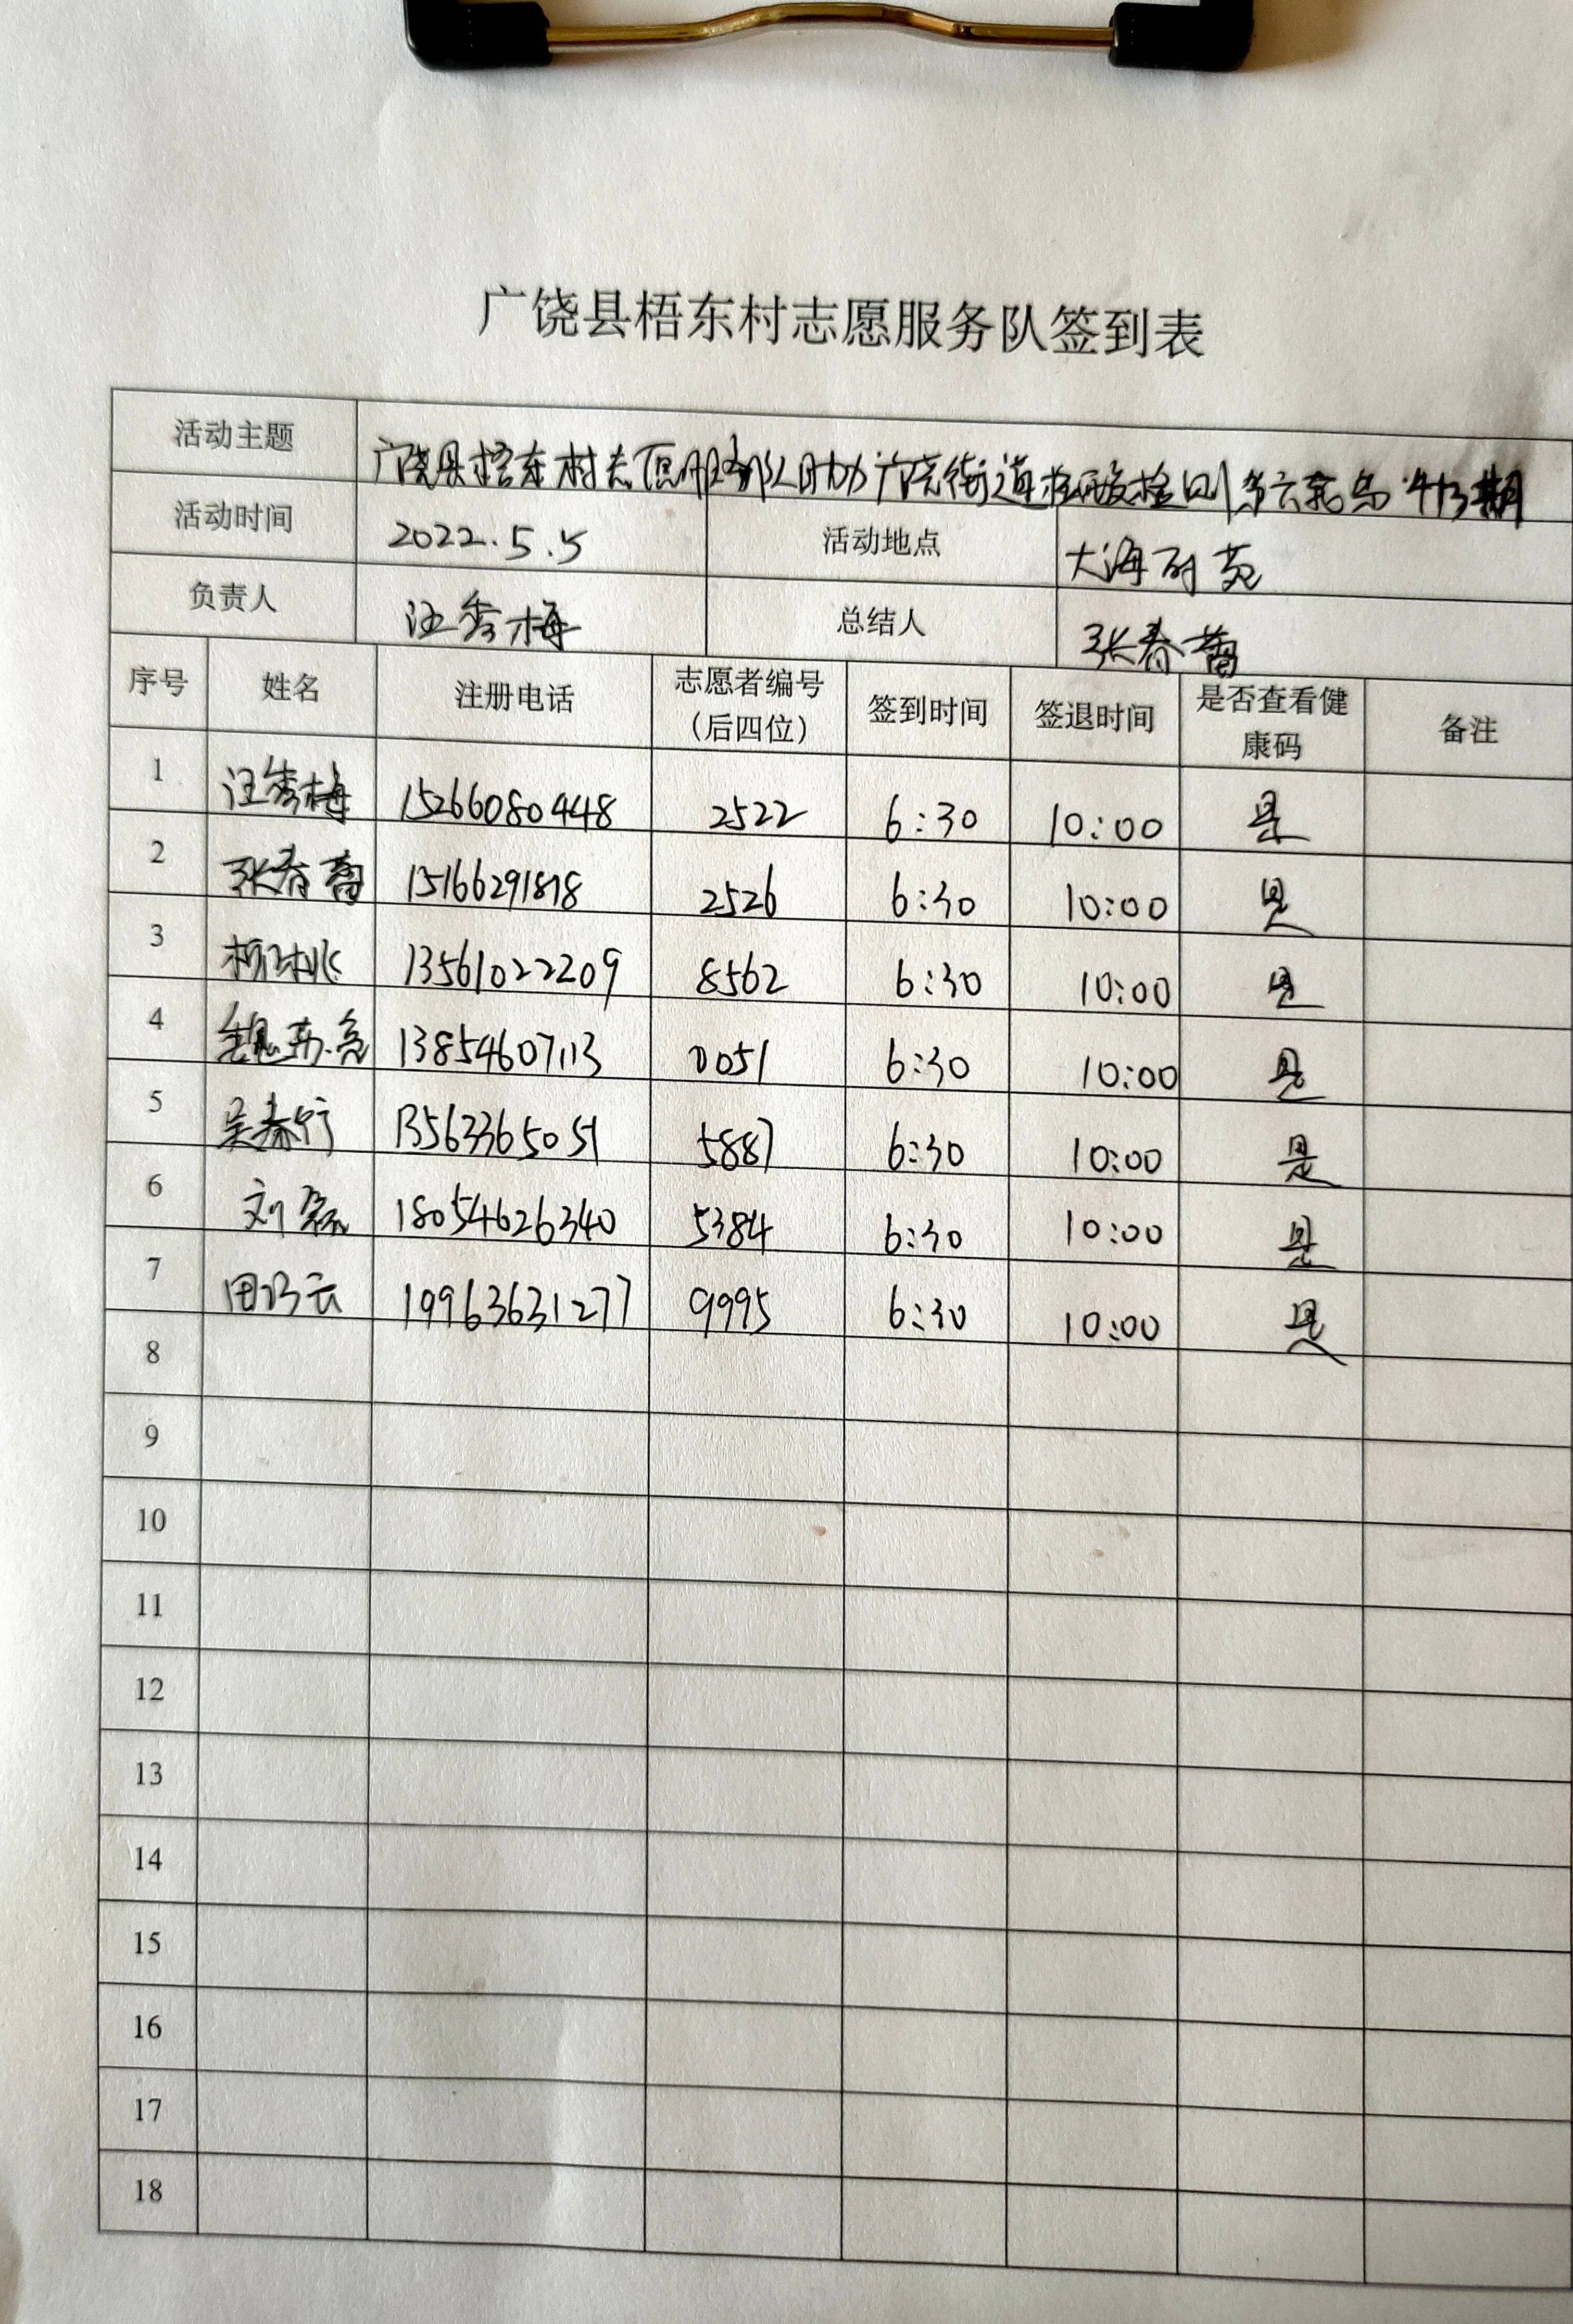 广饶县梧东村志愿服务队签到表
活动主题 广饶县梧东村志愿服务队助力广饶街道核酸检测第六轮 413期
活动时间 2022.5.5 活动地点 大海
负责人 汪秀梅 总结人 张春
序号 姓名 注册电话 志愿者编号（后四位） 签到时间 签退时间 是否查看健康码 备注
1 汪秀梅 15266080448 2522 6:30 10:00 是
2 张春 15166291818 2526 6:30 10:00 是
3 13561022209 8562 6:30 10:00 是
4 13854607113 0051 6:30 10:00 是
5 吴春 13563365051 5887 6:30 10:00 是
6 刘 18054626340 5384 6:30 10:00 是
7 田巧云 19963631277 9995 6:30 10:00 是
8
9
10
11
12
13
14
15
16
17
18